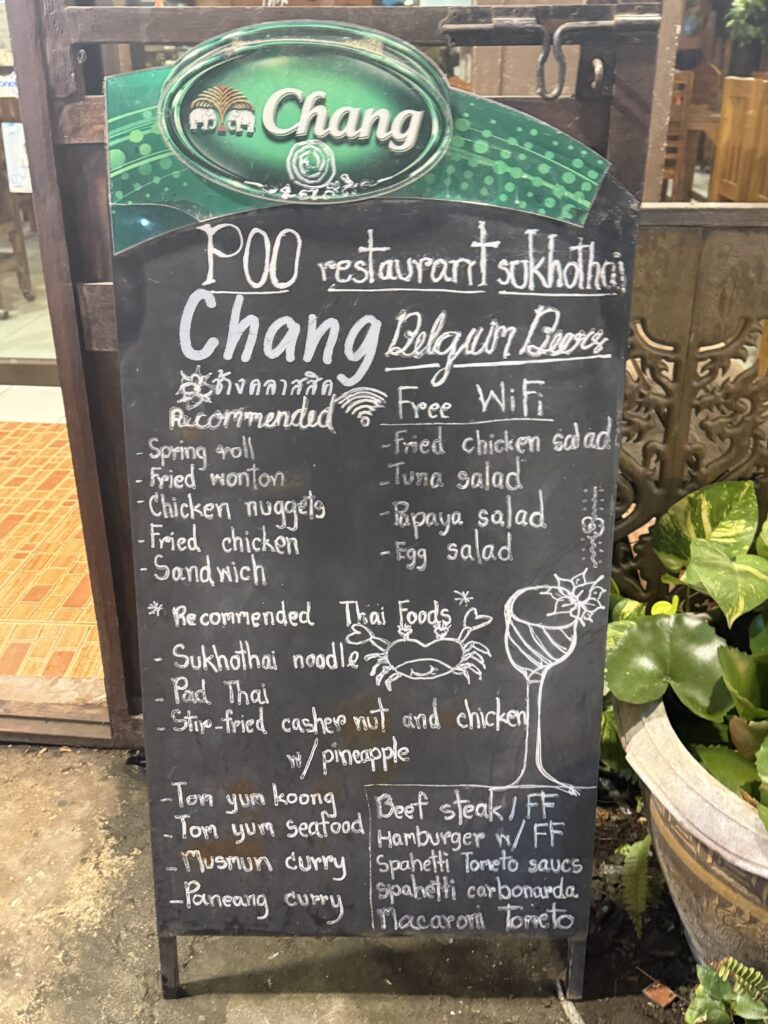 Chang
POO restaurant sukhothai
Chang Belgum Beers
ช้างคลาสสิค
Recommended
Free WiFi
- Spring roll
- Fried wonton
- Chicken nuggets
- Fried chicken
- Sandwich
- Fried chicken salad
- Tuna salad
- Papaya salad
- Egg salad
* Recommended Thai Foods *
- Sukhothai noodle
- Pad Thai
- Stir-fried casher nut and chicken
w/ pineapple
- Tom yum koong
- Tom yum seafood
- Musmun curry
- Paneang curry
Beef steak / FF
Hamburger w/ FF
Spahetti Tometo saucs
spahetti carbonarda
Macaroni Tometo